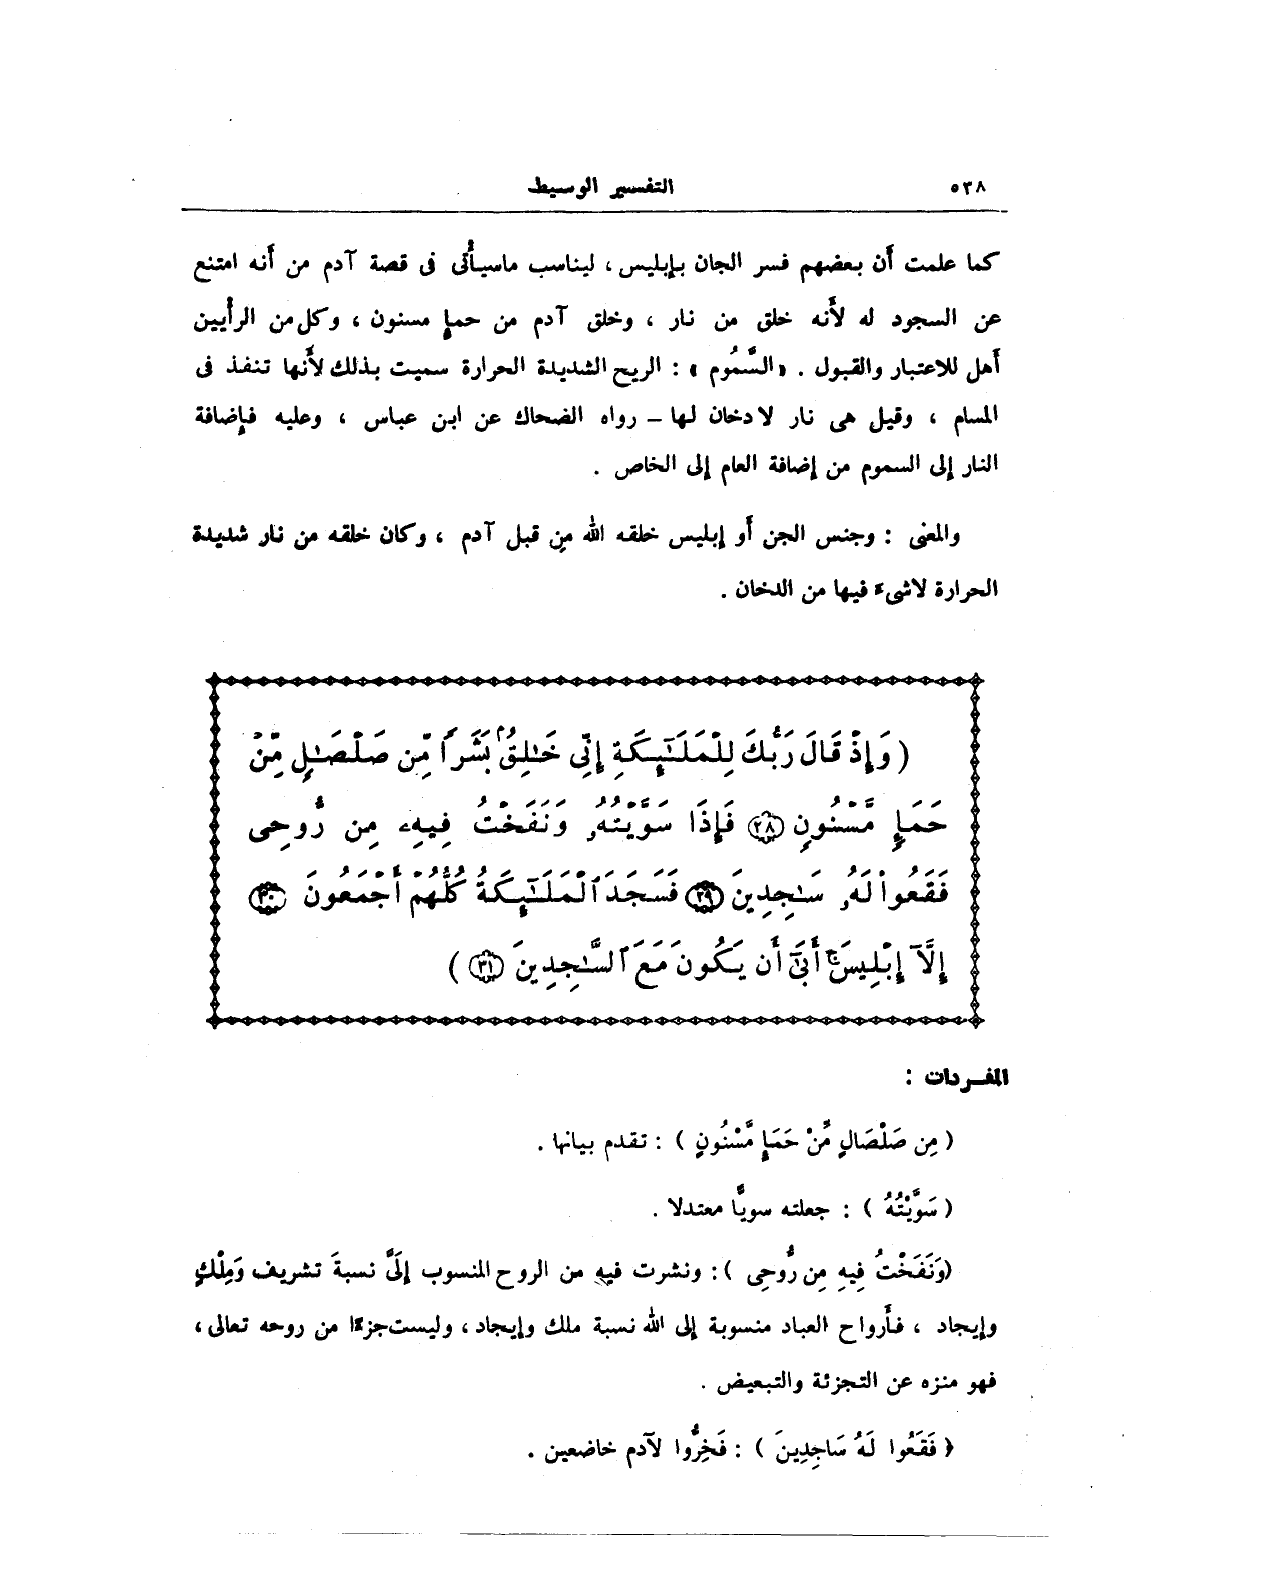 ٥٣٨ التفسير الوسيط
كما علمت أن بعضهم فسر الجان بإبليس ، ليناسب ماسيأتى فى قصة آدم من أنه امتنع
عن السجود له لأنه خلق من نار ، وخلق آدم من حمإ مسنون ، وكل من الرأيين
أهل للاعتبار والقبول . « السَّمُوم » : الريح الشديدة الحرارة سميت بذلك لأنها تنفذ فى
المسام ، وقيل هى نار لا دخان لها – رواه الضحاك عن ابن عباس ، وعليه فإضافة
النار إلى السموم من إضافة العام إلى الخاص .
والمعنى : وجنس الجن أو إبليس خلقه الله مِن قبل آدم ، وكان خلقه من نار شديدة
الحرارة لاشىء فيها من الدخان .
( وَإِذْ قَالَ رَبُّكَ لِلْمَلَـٰٓئِكَةِ إِنِّى خَـٰلِقُۢ بَشَرًا مِّن صَلْصَـٰلٍ مِّنْ
حَمَإٍ مَّسْنُونٍ ﴿٢٨﴾ فَإِذَا سَوَّيْتُهُۥ وَنَفَخْتُ فِيهِ مِن رُّوحِى
فَقَعُوا۟ لَهُۥ سَـٰجِدِينَ ﴿٢٩﴾ فَسَجَدَ ٱلْمَلَـٰٓئِكَةُ كُلُّهُمْ أَجْمَعُونَ ﴿٣٠﴾
إِلَّآ إِبْلِيسَ أَبَىٰٓ أَن يَكُونَ مَعَ ٱلسَّـٰجِدِينَ ﴿٣١﴾ )
المفـردات :
( مِن صَلْصَالٍ مِّنْ حَمَإٍ مَّسْنُونٍ ) : تقدم بيانها .
( سَوَّيْتُهُ ) : جعلته سويًّا معتدلا .
(وَنَفَخْتُ فِيهِ مِن رُّوحِى ) : ونشرت فيهِ من الروح المنسوب إِلَىَّ نسبةَ تشريف وَمِلْكٍ
وإيجاد ، فأرواح العباد منسوبة إلى الله نسبة ملك وإيجاد ، وليست جزءًا من روحه تعالى ،
فهو منزه عن التجزئة والتبعيض .
( فَقَعُوا لَهُ سَاجِدِينَ ) : فَخِرُّوا لآدم خاضعين .